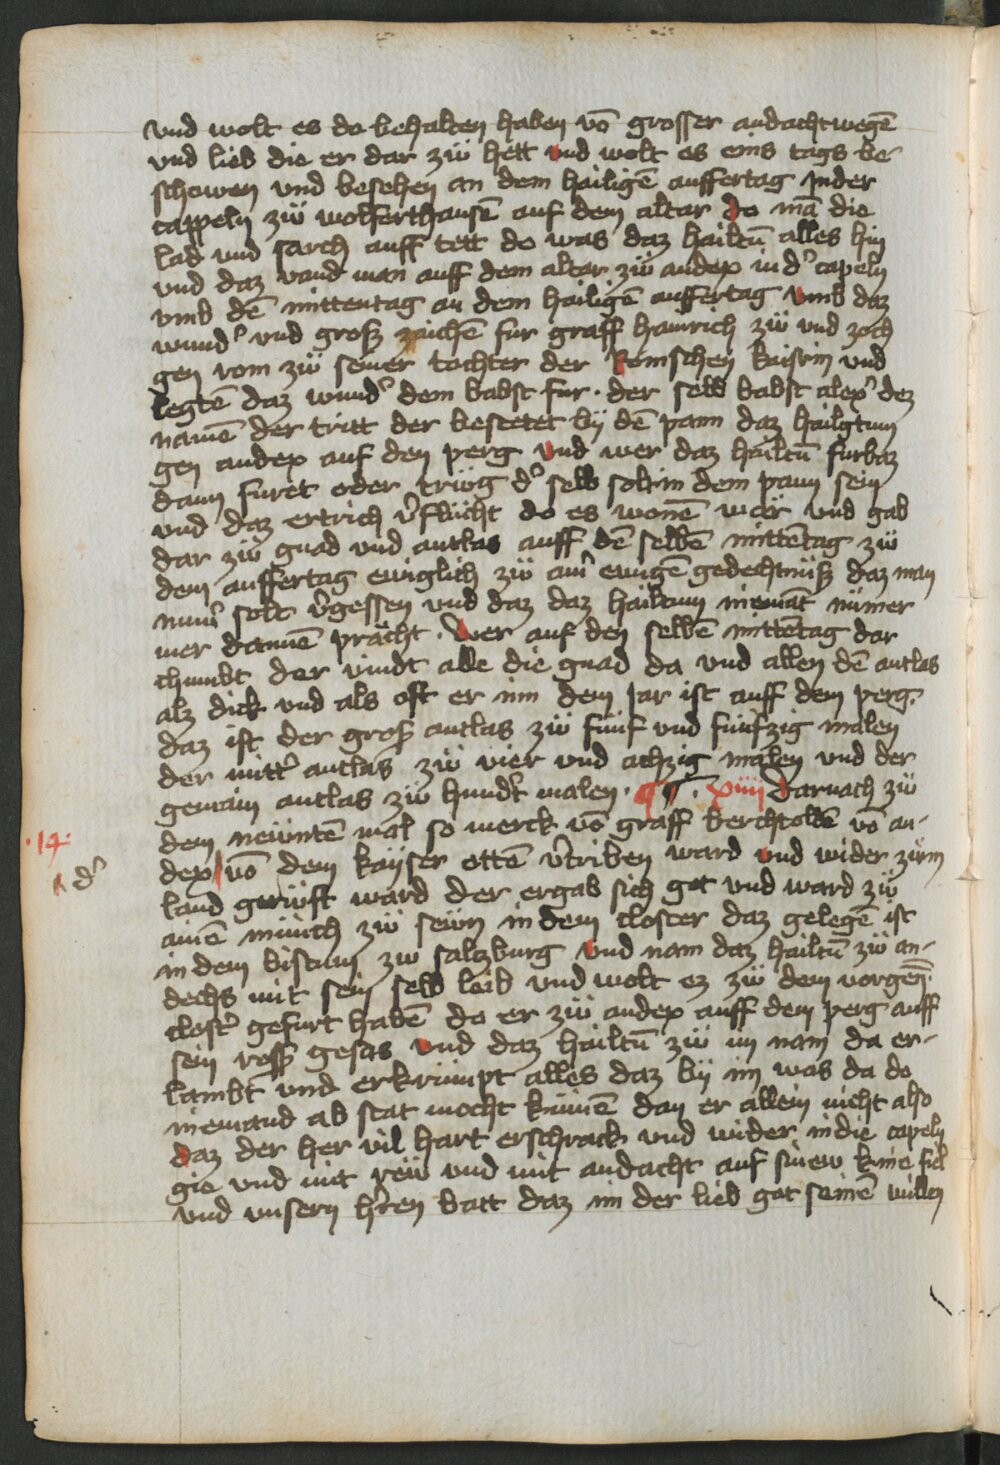 vnd wolt es do behalten haben vō grosser andacht wegē
vnd lieb die er dar zů hett vnd wolt es eins tags be-
schowen vnd besehen an dem hailigē auffertag In der
cappeln zů wolfferthausē auf dem altar do mā die
lad vnd sarch auff tett do was daz hailtū alles hin
vnd daz vand man auff dem altar zů andex in dˀ capeln
vmb dē mittentag an dem hailigē auffertag vmb daz
wundˀ vnd groß zaichē fur graff hainrich zů vnd zoch
gen rom zů seiner tochter der Romschen kaisrin vnd
legtē daz wundˀ dem babst fur · der selb babst alexˀ dez
namē der tritt der bestetet bÿ dē pann daz hailgtum
gen andex auf den perg vnd wer daz hailtū furbaz
dann furet oder trüg dˀ selb solt in dem pann sein
vnd daz ertrich v̉flücht do es wonē wär vnd gab
dar zů gnad vnd antlas auff dē selbē mittētag zů
dem auffertag ewiglich zů aimˀ ewigē gedechtnüß daz man
nimˀ solt v̉gessen vnd daz daz hailtum niemāt nümer
mer dannē prächt · Wer auf den selbē mittētag dar
chumbt der vindt alle die gnad da vnd allen dē antlas
alz dick vnd als oft er inn dem Jar ist auff dem perg.
daz ist der groß antlas zů fünf vnd fünfzig malen
der mittˀ antlas zů vier vnd achzig malen vnd der
gemain antlas zů hundˀt malen · ¶ ¶ · xiiij Darnach zů
·14·
dem neüntē mal so merck vō graff berchtoldē vō an-
dex / vō dem kaÿser ottē v̉triben ward vnd wider zům
ʌ dˀ
land gerüft ward der ergab sich got vnd ward zů
ainē münch zů sewn in dem closter daz gelegē ist
in dem bistum zů saltzburg vnd nam daz hailtū zů an-
dechs mit sein selb leib vnd wolt ez zů dem vorgēn̄
clostˀ gefurt habē do er zů andex auff dem perg auff
sein roß gesas vnd daz hailtū zů im nam da er-
lambt vnd erkrümpt alles daz bÿ im was da do
niemand ab stat mocht kümē dan er allein nicht also
daz der her vil hart erschrack vnd wider in die capeln
gie vnd mit reü vnd mit andacht auf sinew knie fiel
vnd vnsern hˀren batt daz im der lieb got seinē willen